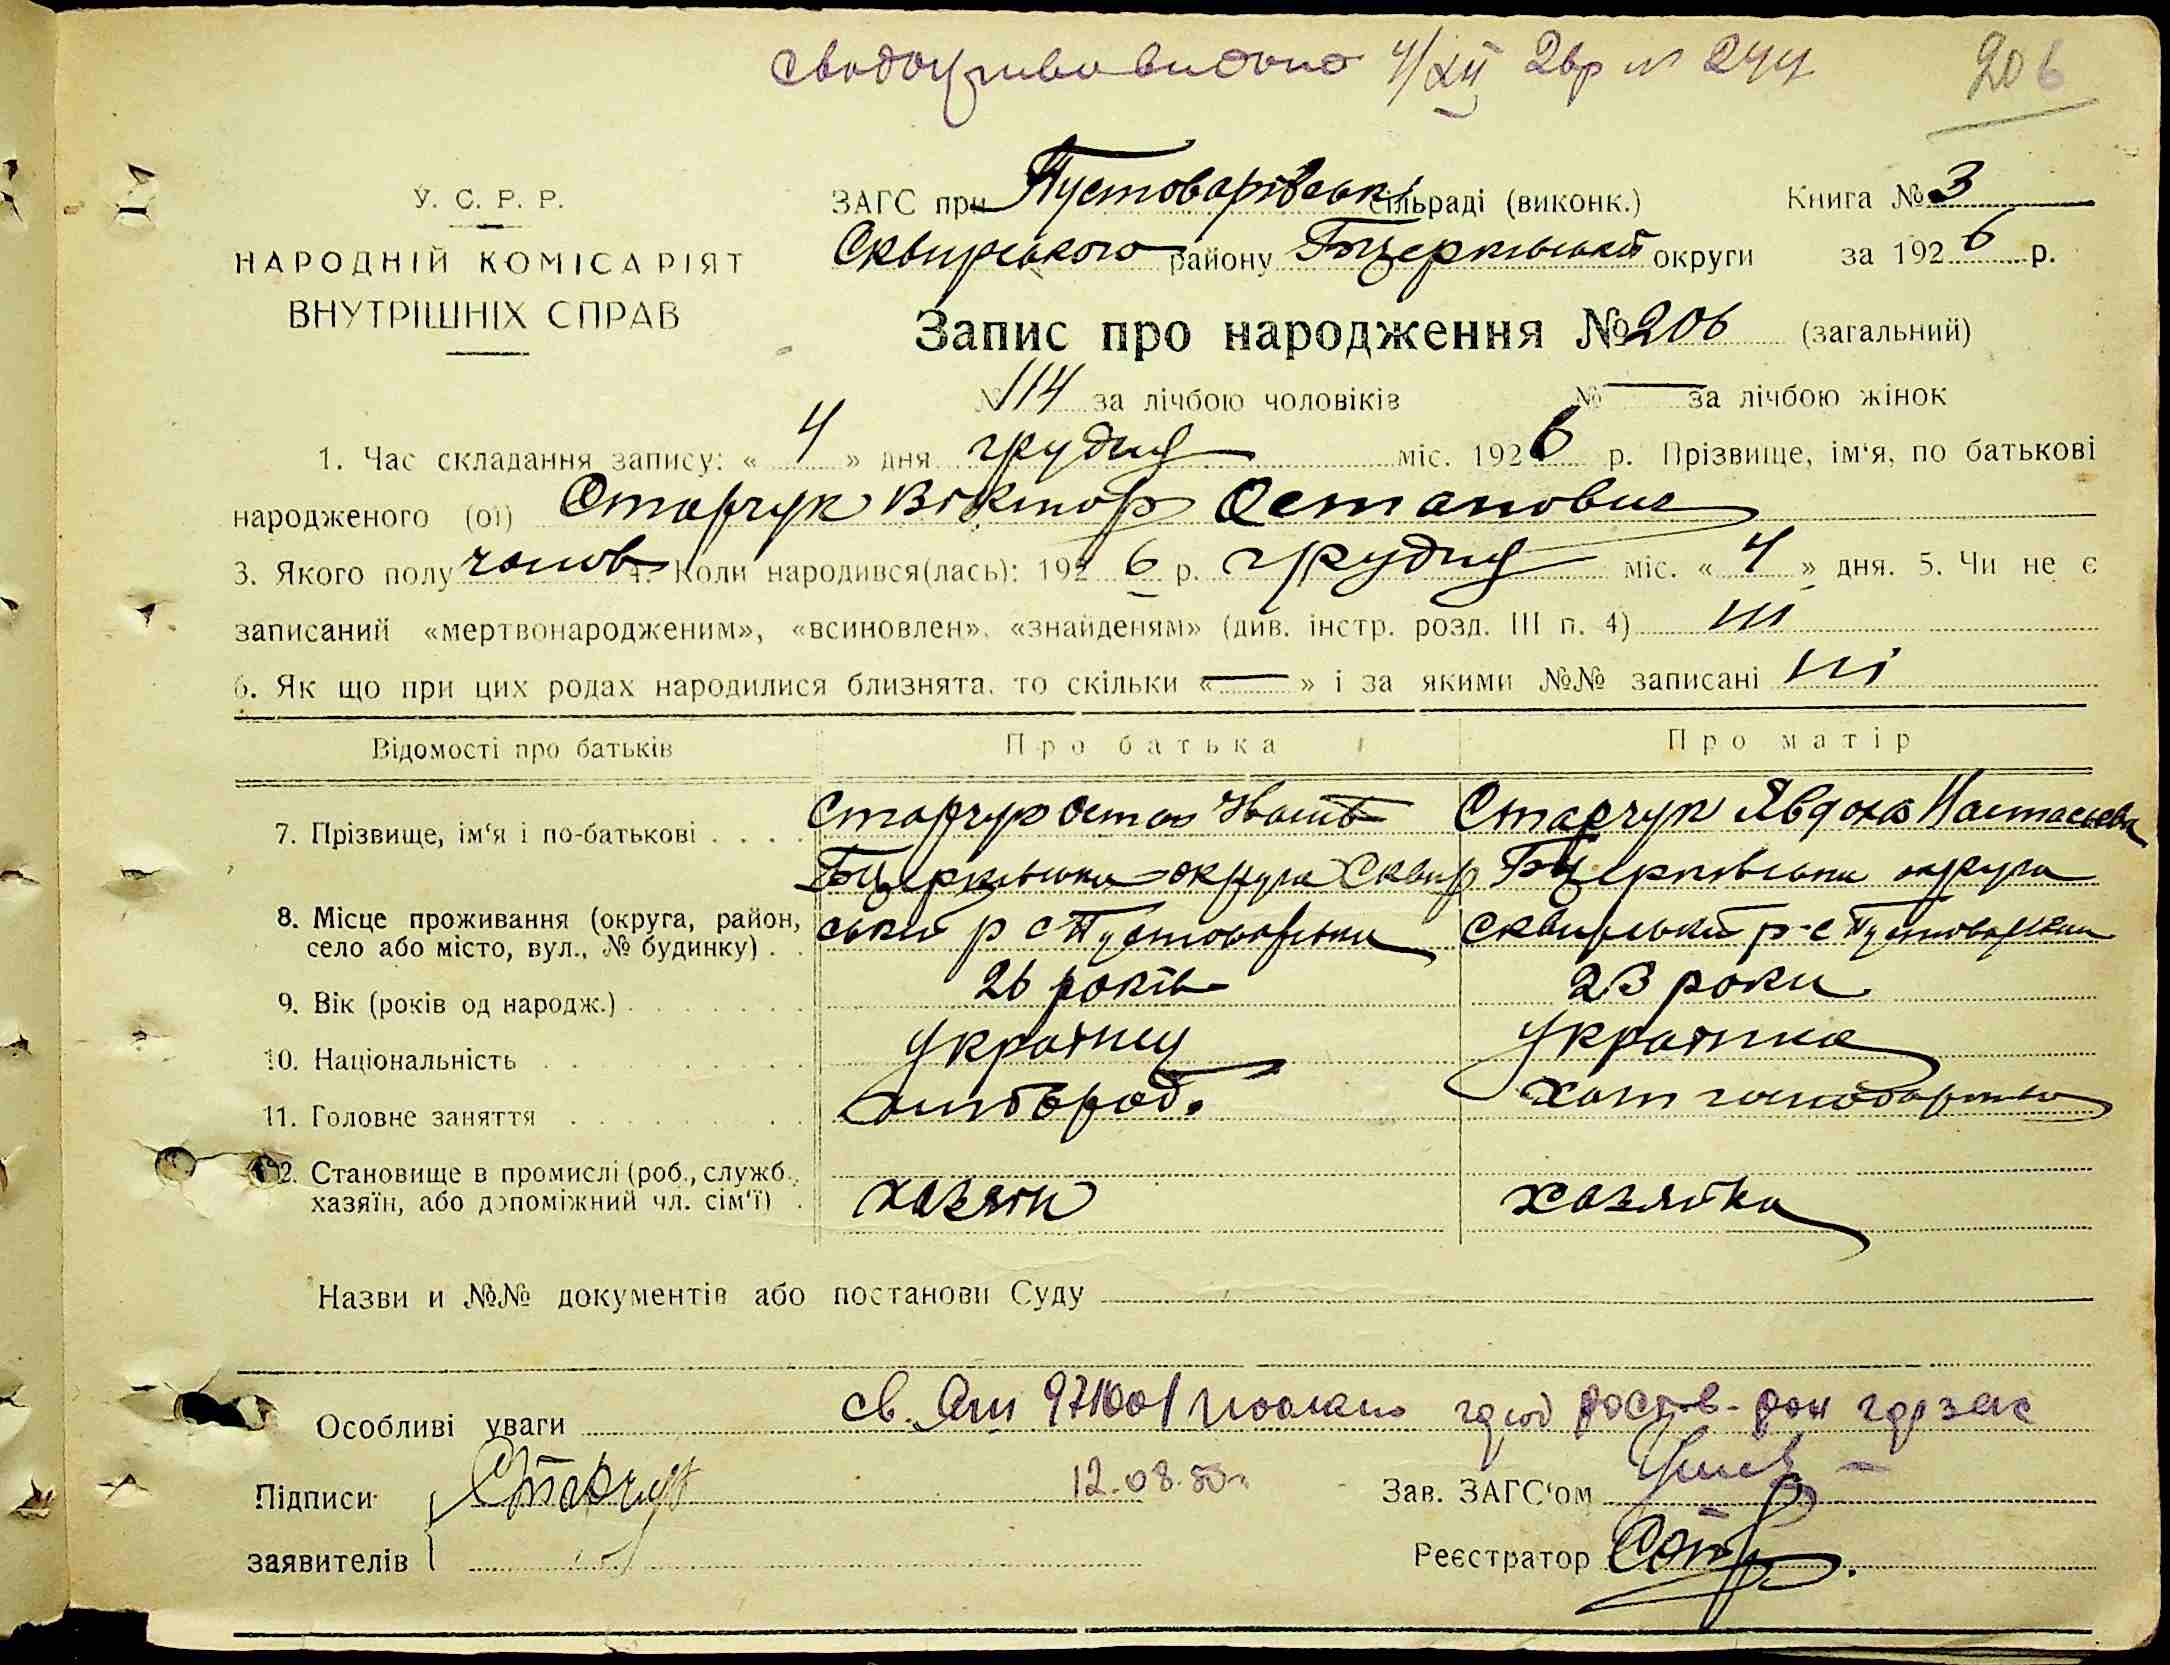 видано 4/XII 26р № 244 206
У. С. Р. Р.
НАРОДНІЙ КОМІСАРІЯТ
ВНУТРІШНІХ СПРАВ
ЗАГС при Пустоварівськ. сільраді (виконк.) Книга № 3
Сквирського району Бцерківської округи за 1926 р.
Запис про народження № 206 (загальний)
№ 114 за лічбою чоловіків № — за лічбою жінок
1. Час складання запису: « 4 » дня грудня міс. 1926 р. Прізвище, ім'я, по батькові
народженого (ої) Старчук Віктор Остапович
3. Якого полу чолов 4. Коли народився(лась): 1926 р. грудня міс. « 4 » дня. 5. Чи не є
записаний «мертвонародженим», «всиновлен», «знайденям» (див. інстр. розд. III п. 4) ні
6. Як що при цих родах народилися близнята, то скільки «—» і за якими №№ записані ні
Відомості про батьків Про батька Про матір
7. Прізвище, ім'я і по-батькові . . . . Старчук Остап Іванів Старчук Явдоха
8. Місце проживання (округа, район, село або місто, вул., № будинку) . . Бцерківська округа Сквир Бцерківська округа
ський р с Пустоварівка Сквирський р-с Пустоварівка
9. Вік (років од народж.) . . . . . . . 26 років 23 роки
10. Національність . . . . . . . . . українец українка
11. Головне заняття . . . . . . . . хлібороб. хат господарство
12. Становище в промислі (роб., служб., хазяїн, або допоміжний чл. сім'ї) . хазяїн хазяйка
Назви и №№ документів або постанови Суду
Особливі уваги св. 971001 Ростов-дон гор загс
Підписи Старчук 12.08.80г Зав. ЗАГС'ом
заявителів Реєстратор